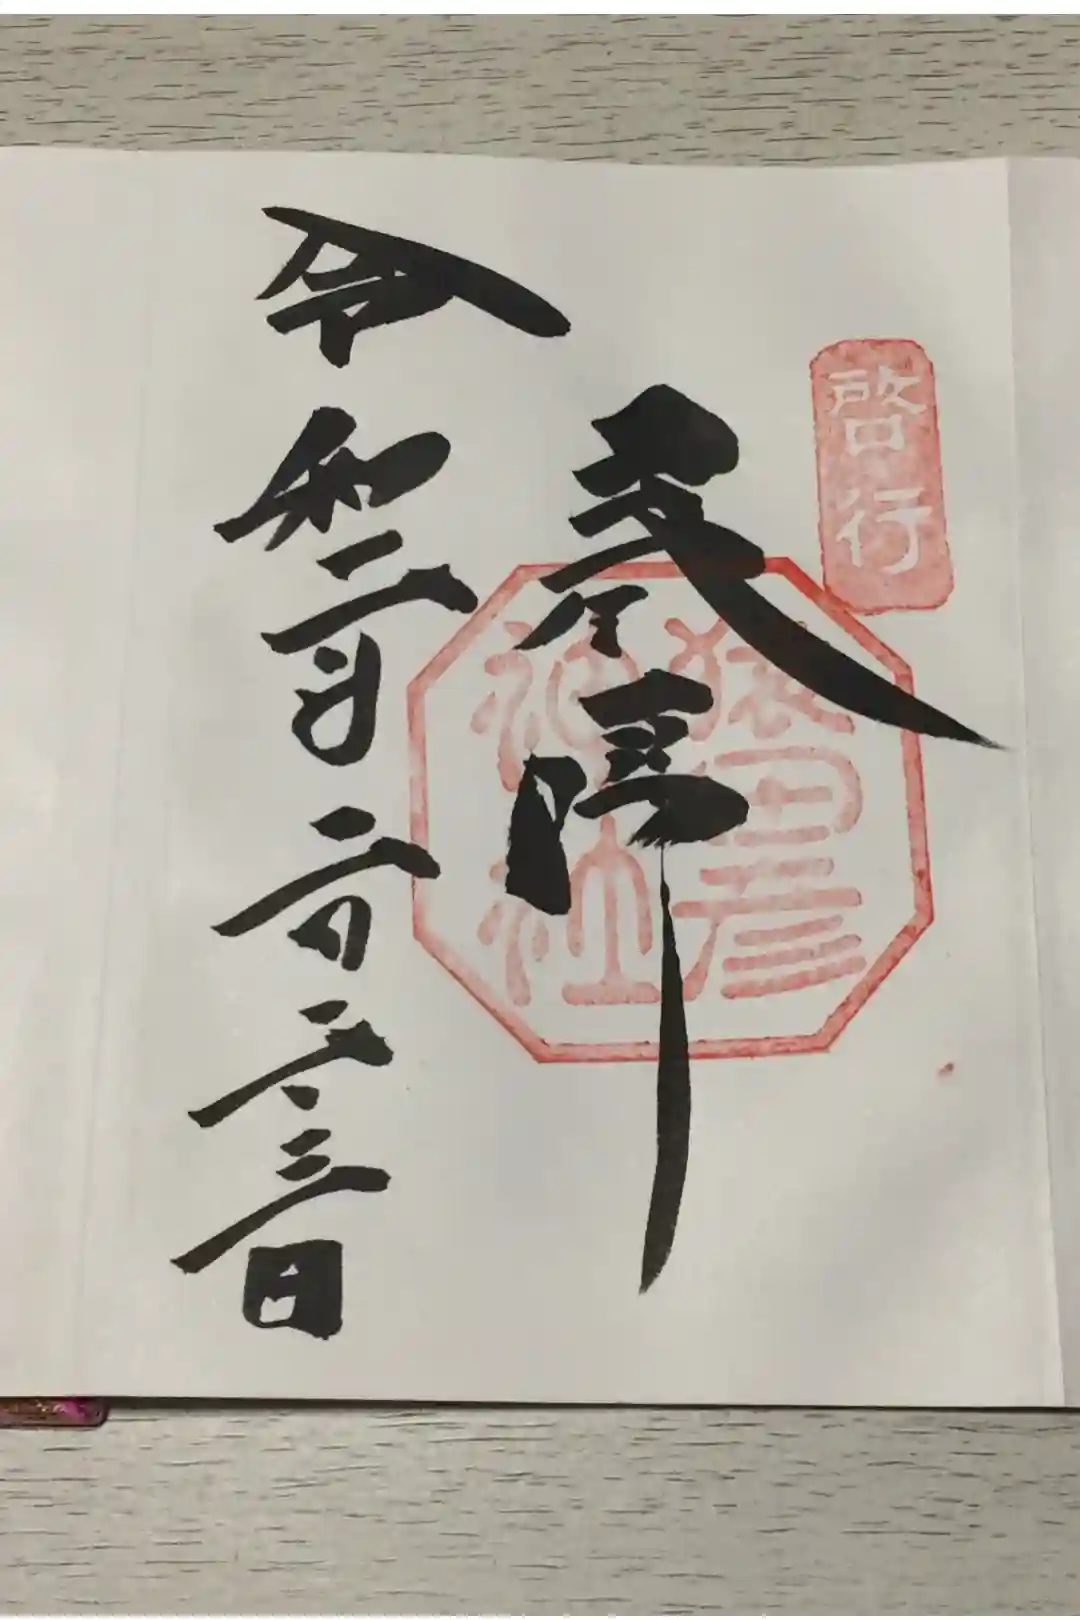 啓行
奉拝
猿田彦
神社
令和二年二月二十三日